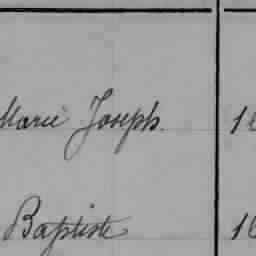 Marie Joseph.
Baptiste